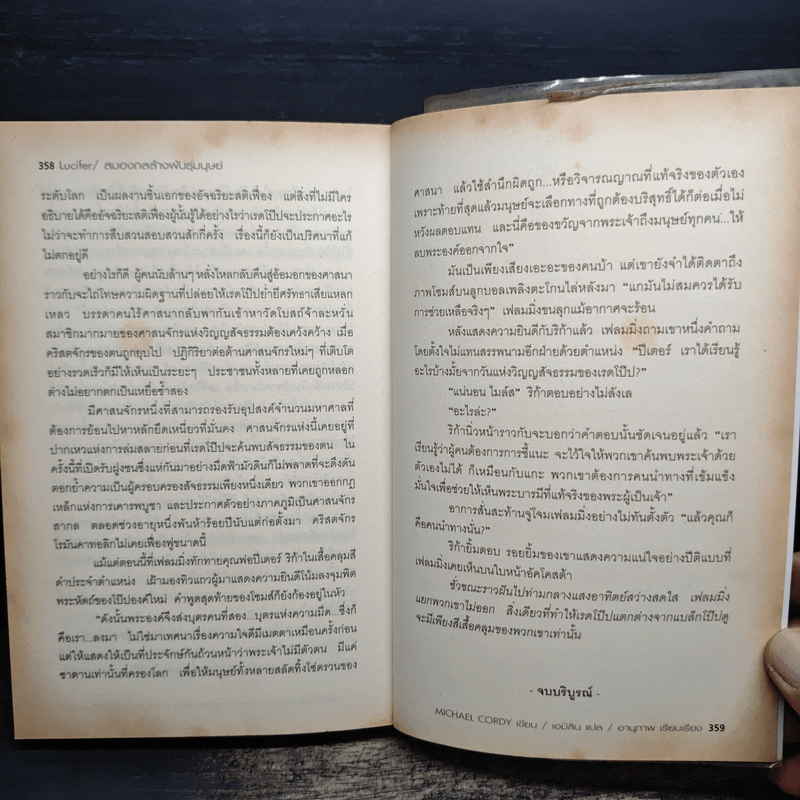 358 Lucifer/ สมองกลล้างพันธุ์มนุษย์
ระดับโลก เป็นผลงานชิ้นเอกของอัจฉริยะสติเฟื่อง แต่สิ่งที่ไม่มีใคร
อธิบายได้คืออัจฉริยะสติเฟื่องผู้นั้นรู้ได้อย่างไรว่าเรดโป๊ปจะประกาศอะไร
ไม่ว่าจะทำการสืบสวนสอบสวนสักกี่ครั้ง เรื่องนี้ก็ยังเป็นปริศนาที่แก้
ไม่ตกอยู่ดี
อย่างไรก็ดี ผู้คนนับล้านๆ หลั่งไหลกลับคืนสู่อ้อมอกของศาสนา
ราวกับจะไถ่โทษความผิดฐานที่ปล่อยให้เรดโป๊ปย่ำยีศรัทธาเสียแหลก
เหลว บรรดาคนไร้ศาสนากลับพากันเข้าหาวัดโบสถ์จ้าละหวั่น
สมาชิกมากมายของศาสนจักรแห่งวิญญูสัจธรรมต้องเคว้งคว้าง เมื่อ
คริสตจักรของตนถูกยุบไป ปฏิกิริยาต่อต้านศาสนจักรใหม่ๆ ที่เติบโต
อย่างรวดเร็วก็มีให้เห็นเป็นระยะๆ ประชาชนทั้งหลายที่เคยถูกหลอก
ต่างไม่อยากตกเป็นเหยื่อซ้ำสอง
มีศาสนจักรหนึ่งที่สามารถรองรับอุปสงค์จำนวนมหาศาลที่
ต้องการย้อนไปหาหลักยึดเหนี่ยวที่มั่นคง ศาสนจักรแห่งนี้เคยอยู่ที่
ปากเหวแห่งการล่มสลายก่อนที่เรดโป๊ปจะค้นพบสัจธรรมของตน ใน
ครั้งนี้ที่เปิดรับฝูงชนซึ่งแห่กันมาอย่างมืดฟ้ามัวดินก็ไม่พลาดที่จะดึงดัน
ตอกย้ำความเป็นผู้ครอบครองสัจธรรมเพียงหนึ่งเดียว พวกเขาออกกฎ
เหล็กแห่งการเคารพบูชา และประกาศตัวอย่างภาคภูมิเป็นศาสนจักร
สากล ตลอดช่วงอายุหนึ่งพันห้าร้อยปีนับแต่ก่อตั้งมา คริสตจักร
โรมันคาทอลิกไม่เคยเฟื่องฟูขนาดนี้
แม้แต่ตอนนี้ที่เฟลมมิ่งทักทายคุณพ่อปีเตอร์ ริก้าในเสื้อคลุมสี
ดำประจำตำแหน่ง เฝ้ามองทิวแถวผู้มาแสดงความยินดีโน้มลงจุมพิต
พระหัตถ์ของโป๊ปองค์ใหม่ คำพูดสุดท้ายของโซมส์ก็ยังก้องอยู่ในหัว
“ดังนั้นพระองค์จึงส่งบุตรคนที่สอง...บุตรแห่งความมืด...ซึ่งก็
คือเรา...ลงมา ไม่ใช่มาเทศนาเรื่องความใจดีมีเมตตาเหมือนครั้งก่อน
แต่ให้แสดงให้เป็นที่ประจักษ์กันถ้วนหน้าว่าพระเจ้าไม่มีตัวตน มีแค่
ซาตานเท่านั้นที่ครองโลก เพื่อให้มนุษย์ทั้งหลายสลัดทิ้งโซ่ตรวนของ
ศาสนา แล้วใช้สำนึกผิดถูก...หรือวิจารณญาณที่แท้จริงของตัวเอง
เพราะท้ายที่สุดแล้วมนุษย์จะเลือกทางที่ถูกต้องบริสุทธิ์ได้ก็ต่อเมื่อไม่
หวังผลตอบแทน และนี่คือของขวัญจากพระเจ้าถึงมนุษย์ทุกคน...ให้
ลบพระองค์ออกจากใจ”
มันเป็นเพียงเสียงเอะอะของคนบ้า แต่เขายังจำได้ติดตาถึง
ภาพโซมส์บนลูกบอลเพลิงตะโกนไล่หลังมา “แกมันไม่สมควรได้รับ
การช่วยเหลือจริงๆ” เฟลมมิ่งขนลุกแม้อากาศจะร้อน
หลังแสดงความยินดีกับริก้าแล้ว เฟลมมิ่งถามเขาหนึ่งคำถาม
โดยตั้งใจไม่แทนสรรพนามอีกฝ่ายด้วยตำแหน่ง “ปีเตอร์ เราได้เรียนรู้
อะไรบ้างมั้ยจากวันแห่งวิญญูสัจธรรมของเรดโป๊ป?”
“แน่นอน ไมล์ส” ริก้าตอบอย่างไม่ลังเล
“อะไรล่ะ?”
ริก้านิ่วหน้าราวกับจะบอกว่าคำตอบนั้นชัดเจนอยู่แล้ว “เรา
เรียนรู้ว่าผู้คนต้องการการชี้แนะ จะไว้ใจให้พวกเขาค้นพบพระเจ้าด้วย
ตัวเองไม่ได้ ก็เหมือนกับแกะ พวกเขาต้องการคนนำทางที่เข้มแข็ง
มั่นใจเพื่อช่วยให้เห็นพระบารมีที่แท้จริงของพระผู้เป็นเจ้า”
อาการสั่นสะท้านจู่โจมเฟลมมิ่งอย่างไม่ทันตั้งตัว “แล้วคุณก็
คือคนนำทางนั้น?”
ริก้ายิ้มตอบ รอยยิ้มของเขาแสดงความแน่ใจอย่างปีติแบบที่
เฟลมมิ่งเคยเห็นบนใบหน้าอัคโคสต้า
ชั่วขณะราวฝันไปท่ามกลางแสงอาทิตย์สว่างสดใส เฟลมมิ่ง
แยกพวกเขาไม่ออก สิ่งเดียวที่ทำให้เรดโป๊ปแตกต่างจากแบล็กโป๊ปดู
จะมีเพียงสีเสื้อคลุมของพวกเขาเท่านั้น
- จบบริบูรณ์ -
MICHAEL CORDY เขียน / เอมิลิน แปล / อานุภาพ เรียบเรียง 359